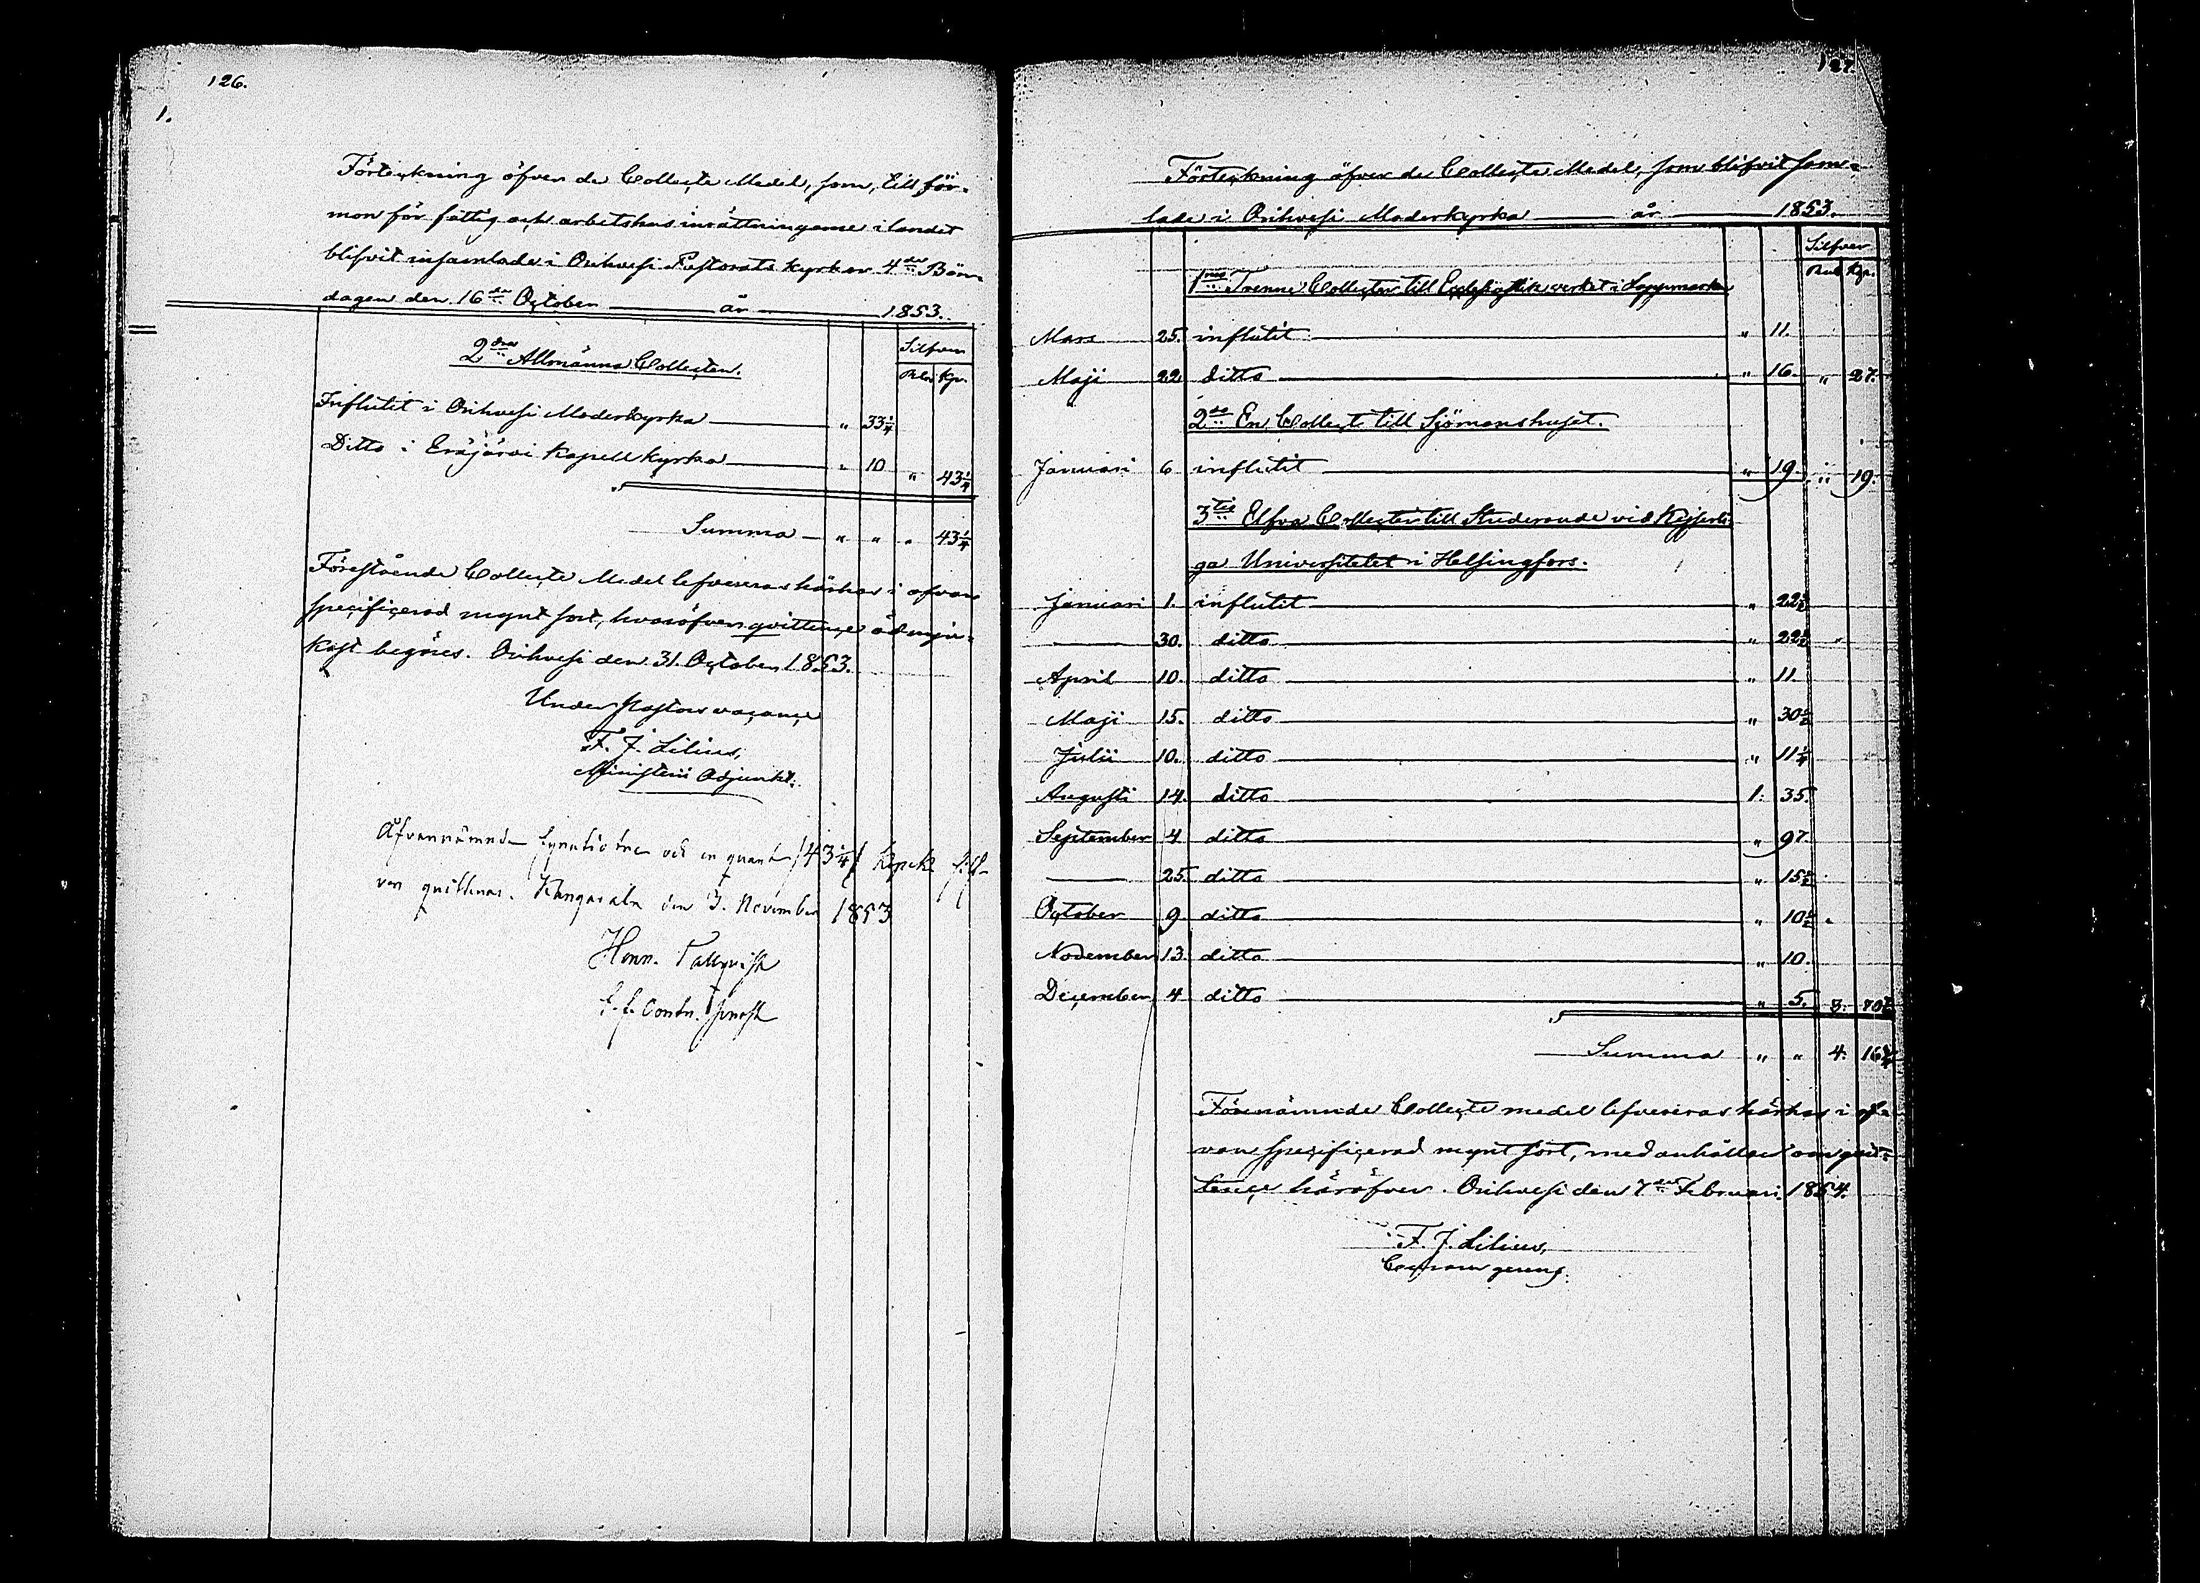 126.
1.
Förteckning öfver de Collecte Medel, som, till för-
mon för fattig och arbetshus inrättningarne i landet
blifvit insamlade i Orihvesi Pastorats kyrkor 4de Böne
dagen den 16de October — år — 1853.
2dra Allmänna Collecten.
Silfver
Rbl. Kp.
Influtit i Orihvesi Moderkyrka — " 33 1/4
Ditto i Eräjärvi Kapell kyrka — " 10 " 43 1/4
Summa — " " " 43 1/4
Förestående Collecte Medel lefvereras härhos i ofvan
specificerad mynt sort, hvaröfver qvittence ödmju-
kast begäres. Orihvesi den 31 October 1853.
Under Pastors vacance
F. J. Lilius,
Ministerii Adjunkt.
Ofvannämnde en 43 1/4 Kopek silf-
ver quitteras. Kangasala den 3. November 1853
Henr. Tallqvist
Contr. Prost
127.
Förteckning öfver de Collecte Medel, som blifvit sam-
lade i Orihvesi Moderkyrka — år — 1853.
Silfver
Rub. Kp.
1mo Tvenne Collecter till Ecclesiastik verket i Lappmarken
Mars 25. influtit — " 11.
Maji 22. ditto — " 16. " 27.
2do En Collect till Sjömanshuset.
Januari 6 influtit — " 19. " 19.
3tio Elfva Collecter till Studerande vid Kejserli-
ga Universitetet i Helsingfors.
Januari 1. influtit — " 22 1/2
— 30. ditto — " 22 1/2
April 10. ditto — " 11.
Maji 15. ditto — " 30 1/2
Julii 10. ditto — " 11 1/4
Augusti 14. ditto — 1. 35.
September 4 ditto — " 97.
— 25. ditto — " 15 1/2
October 9 ditto — " 10 1/2
November 13. ditto — " 10.
December 4 ditto — " 5. 3. 70
Summa " " 4. 16
Förenämnde Collecte medel lefvereras härhos i of-
van specificerad mynt sort, med anhållan om qvit-
tence häröfver. Orihvesi den 7de Februari 1854.
F. J. Lilius,